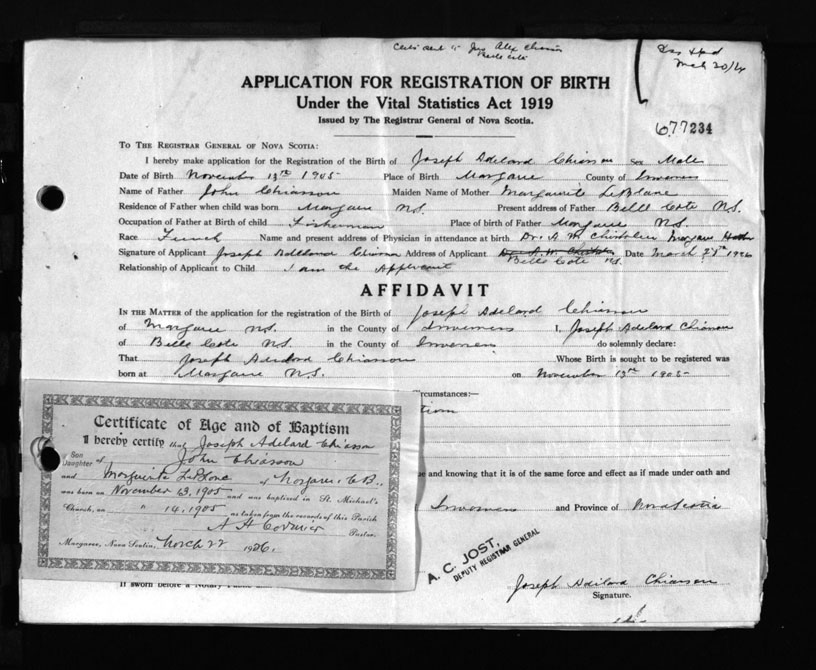 APPLICATION FOR REGISTRATION OF BIRTH
Under the Vital Statistics Act 1919
Issued by The Registrar General of Nova Scotia.
677234
To The Registrar General of Nova Scotia:
I hereby make application for the Registration of the Birth of Joseph Adelard Chiasson Sex Male
Date of Birth November 13th 1905 Place of Birth Margaree County of Inverness
Name of Father John Chiasson Maiden Name of Mother Marguerite LeBlanc
Residence of Father when child was born Margaree N.S. Present address of Father Belle Cote N.S.
Occupation of Father at Birth of child Fisherman Place of birth of Father Margaree N.S.
Race French Name and present address of Physician in attendance at birth Dr. A M Margaree
Signature of Applicant Joseph Adelard Chiasson Address of Applicant Belle Cote N.S. Date March 1926
Relationship of Applicant to Child I am the Applicant
AFFIDAVIT
In the Matter of the application for the registration of the Birth of Joseph Adelard Chiasson
of Margaree N.S. in the County of Inverness I, Joseph Adelard Chiasson
of Belle Cote N.S. in the County of Inverness do solemnly declare:
That Joseph Adelard Chiasson Whose Birth is sought to be registered was
born at Margaree N.S. on November 13th 1905
Circumstances:—
Certificate of Age and of Baptism
I hereby certify that Joseph Adelard Chiasson
Son
Daughter of John Chiasson
and Marguerite LeBlanc of Margaree C.B.,
was born on November 13, 1905 and was baptised in St. Michael's
Church, on " 14, 1905 as taken from the records of this Parish
A H Cormier
Pastor.
Margaree, Nova Scotia, March 22 1926.
and knowing that it is of the same force and effect as if made under oath and
Inverness and Province of Nova Scotia
A. C. JOST,
DEPUTY REGISTRAR GENERAL
If sworn before a Notary Public
Joseph Adelard Chiasson
Signature.